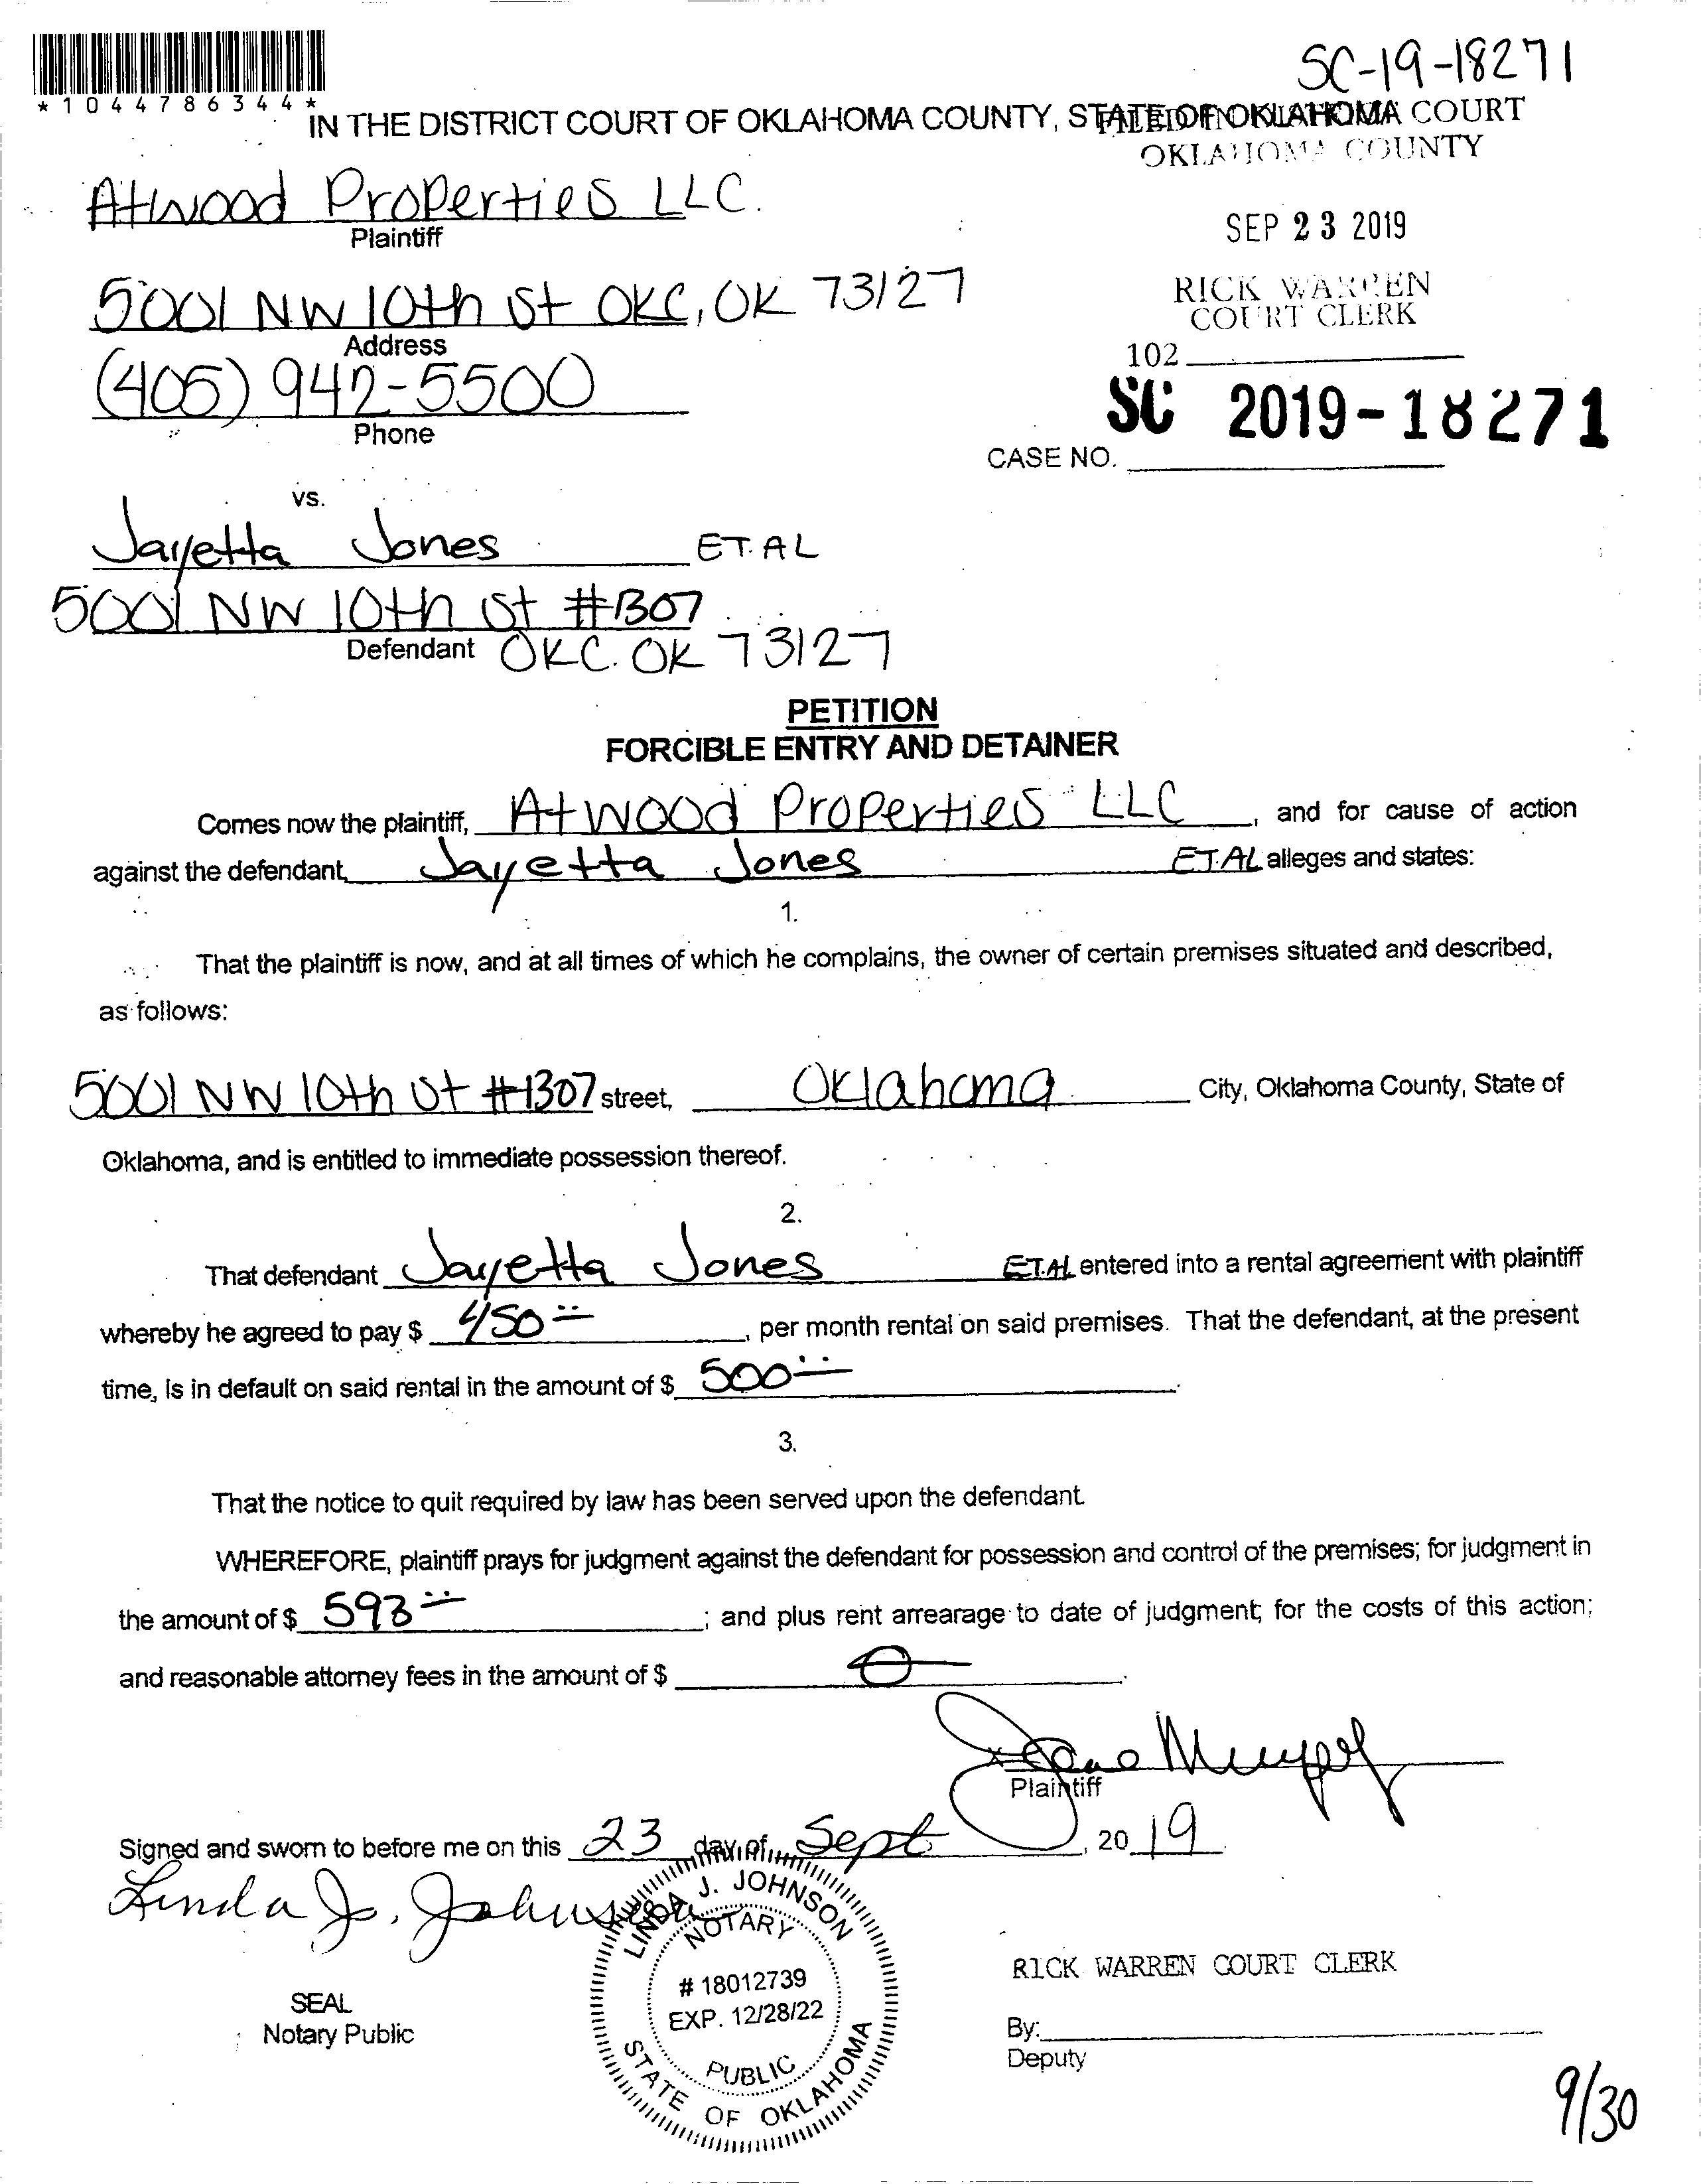 SC-19-18271
*1044786344*
IN THE DISTRICT COURT OF OKLAHOMA COUNTY, STATE OF OKLAHOMA
COURT
OKLAHOMA COUNTY
Atwood Properties LLC.
Plaintiff
SEP 23 2019
5001 NW 10th St OKC, OK 73127
Address
RICK WARREN
COURT CLERK
(405) 942-5500
Phone
102
SC 2019-18271
CASE NO.
vs.
Jayetta Jones ET.AL
5001 NW 10th St #1307
Defendant OKC. OK 73127
PETITION
FORCIBLE ENTRY AND DETAINER
Comes now the plaintiff, Atwood Properties LLC, and for cause of action
against the defendant, Jayetta Jones ET.AL alleges and states:
1.
That the plaintiff is now, and at all times of which he complains, the owner of certain premises situated and described,
as follows:
5001 NW 10th St #1307 street, Oklahoma City, Oklahoma County, State of
Oklahoma, and is entitled to immediate possession thereof.
2.
That defendant Jayetta Jones ET.AL entered into a rental agreement with plaintiff
whereby he agreed to pay $ 450, per month rental on said premises. That the defendant, at the present
time, is in default on said rental in the amount of $ 500.
3.
That the notice to quit required by law has been served upon the defendant.
WHEREFORE, plaintiff prays for judgment against the defendant for possession and control of the premises; for judgment in
the amount of $ 593; and plus rent arrearage to date of judgment; for the costs of this action;
and reasonable attorney fees in the amount of $ 0.
Plaintiff
Signed and sworn to before me on this 23 day of Sept, 2019
Linda J. Johnson
LINDA J. JOHNSON
NOTARY
# 18012739
EXP. 12/28/22
PUBLIC
STATE OF OKLAHOMA
SEAL
Notary Public
RICK WARREN COURT CLERK
By:
Deputy
9/30